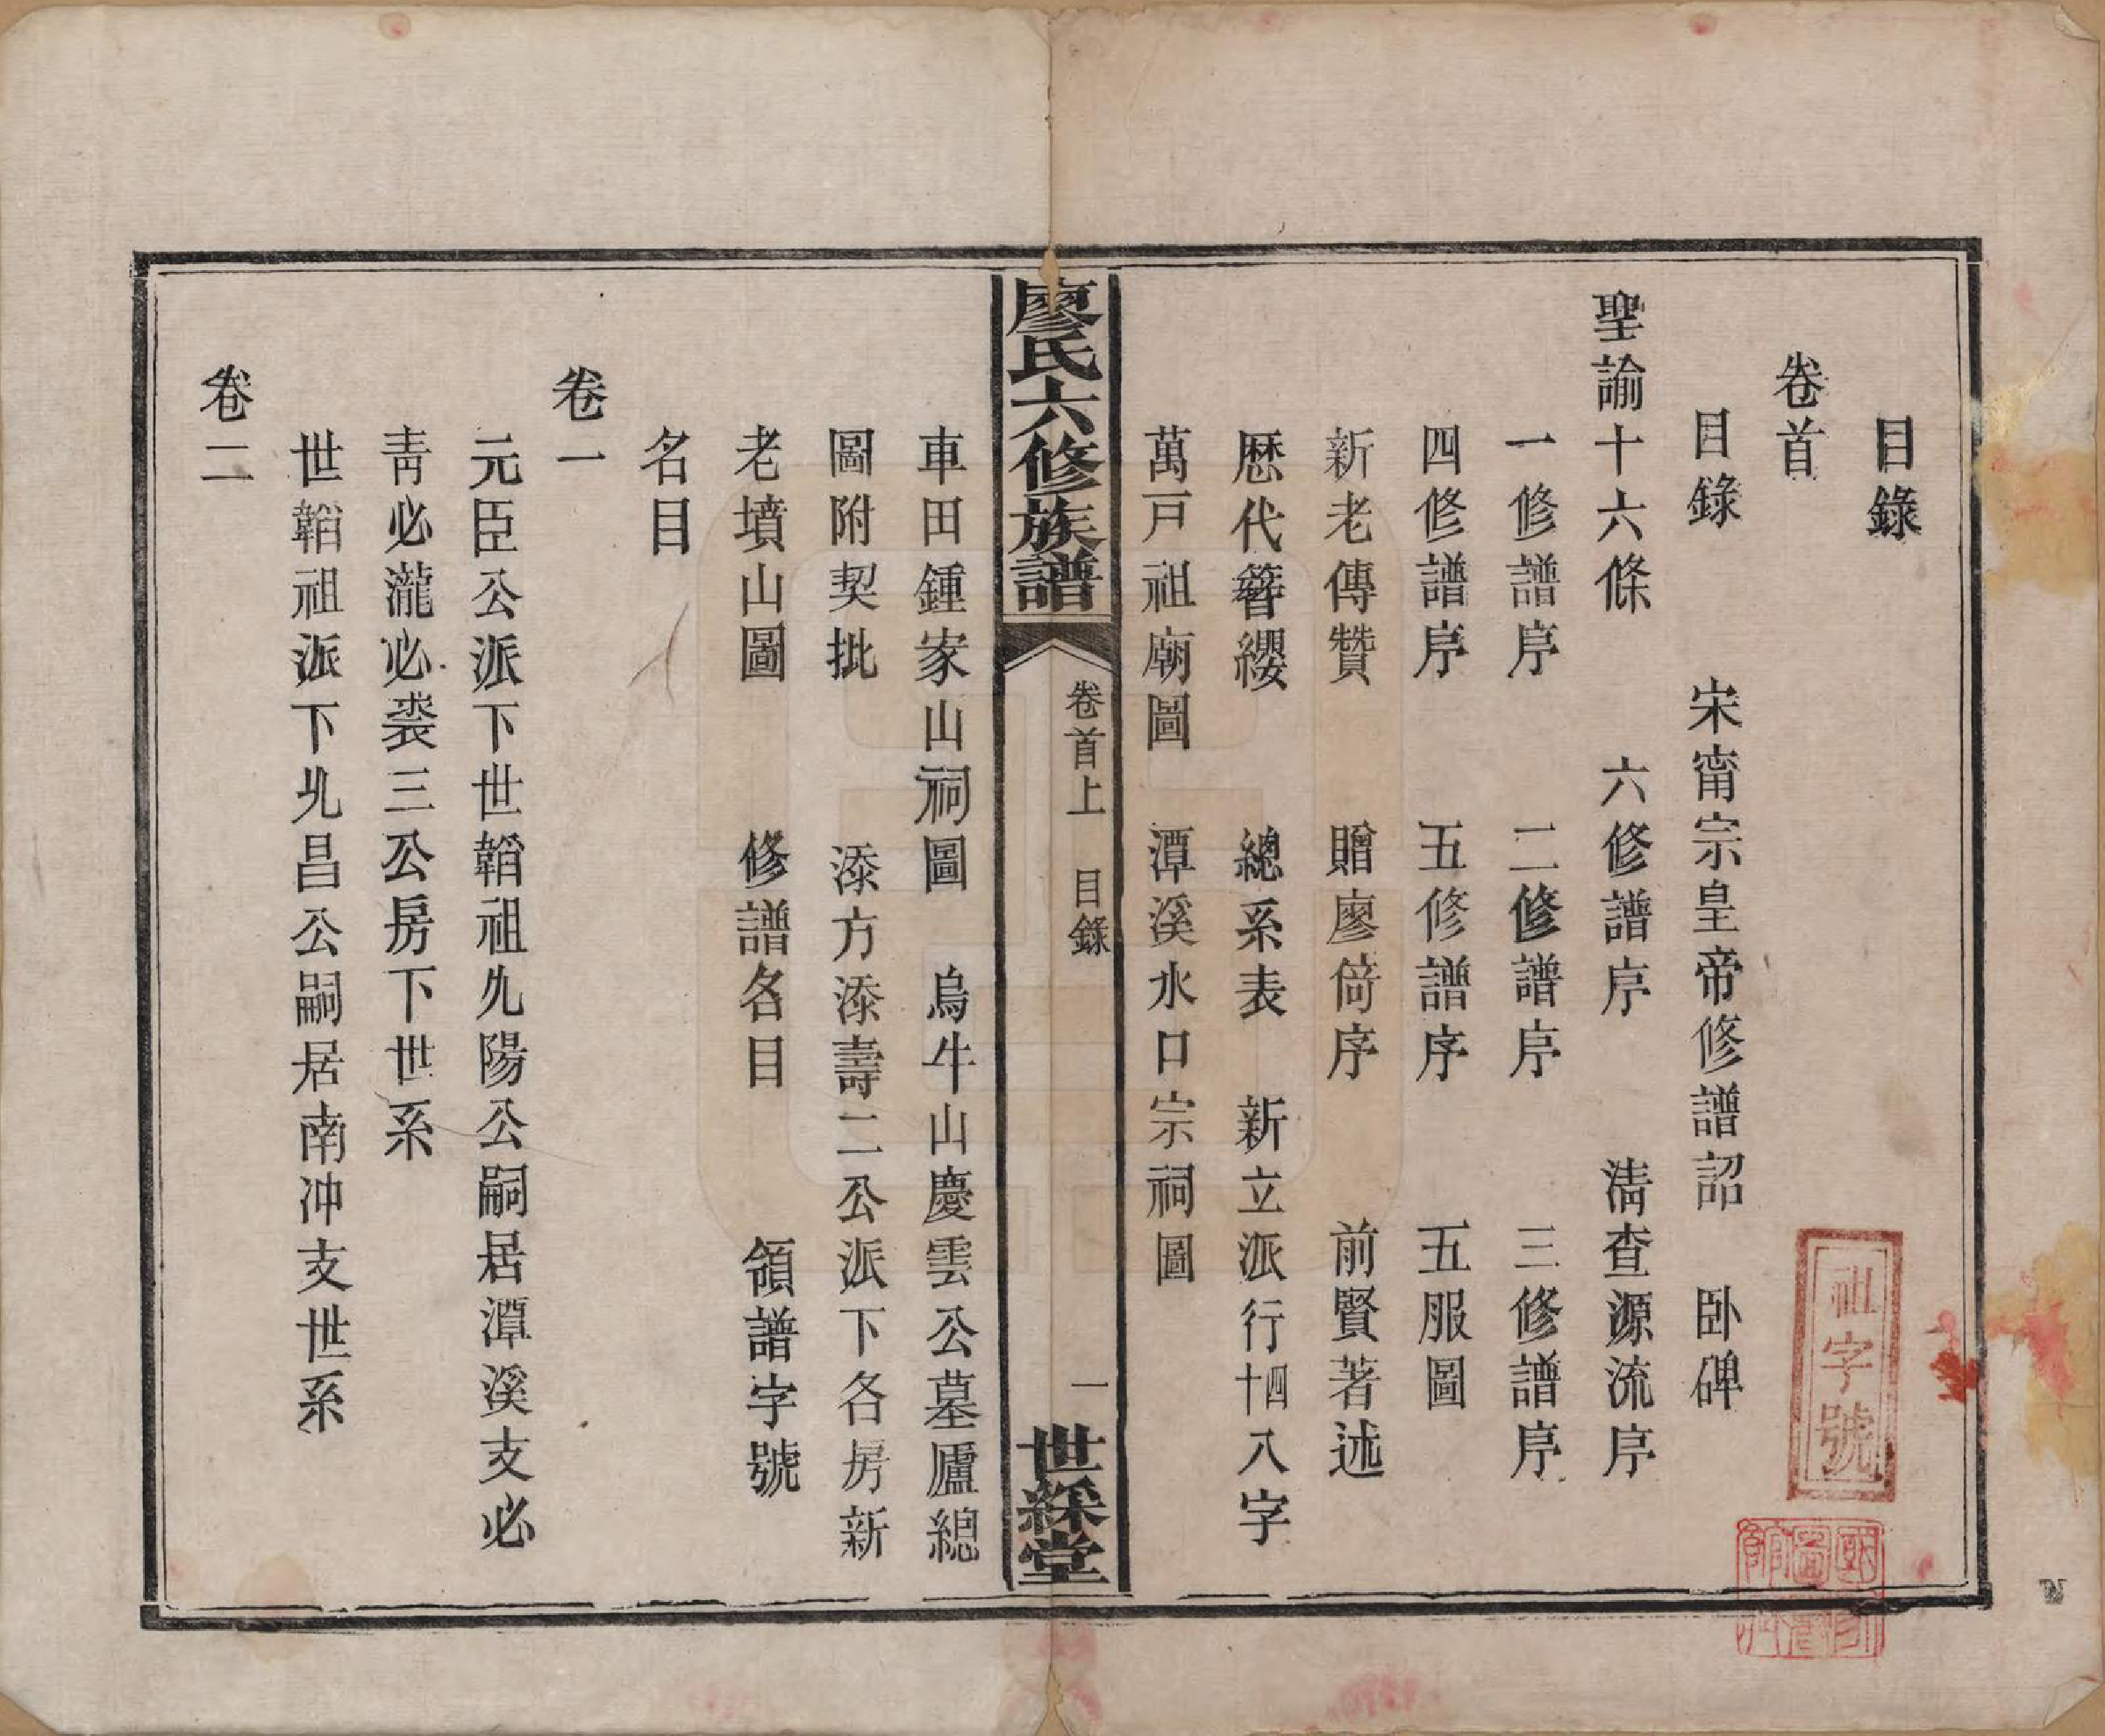 目錄
卷首
目錄　宋甯宗皇帝修譜詔　卧碑
聖諭十六條　六修譜序　清查源流序
一修譜序　二修譜序　三修譜序
四修譜序　五修譜序　五服圖
新老傳贊　贈廖倚序　前賢著述
歷代簪纓　總系表　新立派行四十八字
萬戸祖廟圖　潭溪水口宗祠圖
廖氏六修族譜　卷首上　目錄　一　世綵堂
車田鍾家山祠圖　烏牛山慶雲公墓廬總
圖附契批　添方添壽二公派下各房新
老墳山圖　修譜各目　領譜字號
名目
卷一
元臣公派下世韜祖允陽公嗣居潭溪支必
青必瀧必裘三公房下世系
世韜祖派下允昌公嗣居南冲支世系
卷二
祖字號
國家圖書館藏書